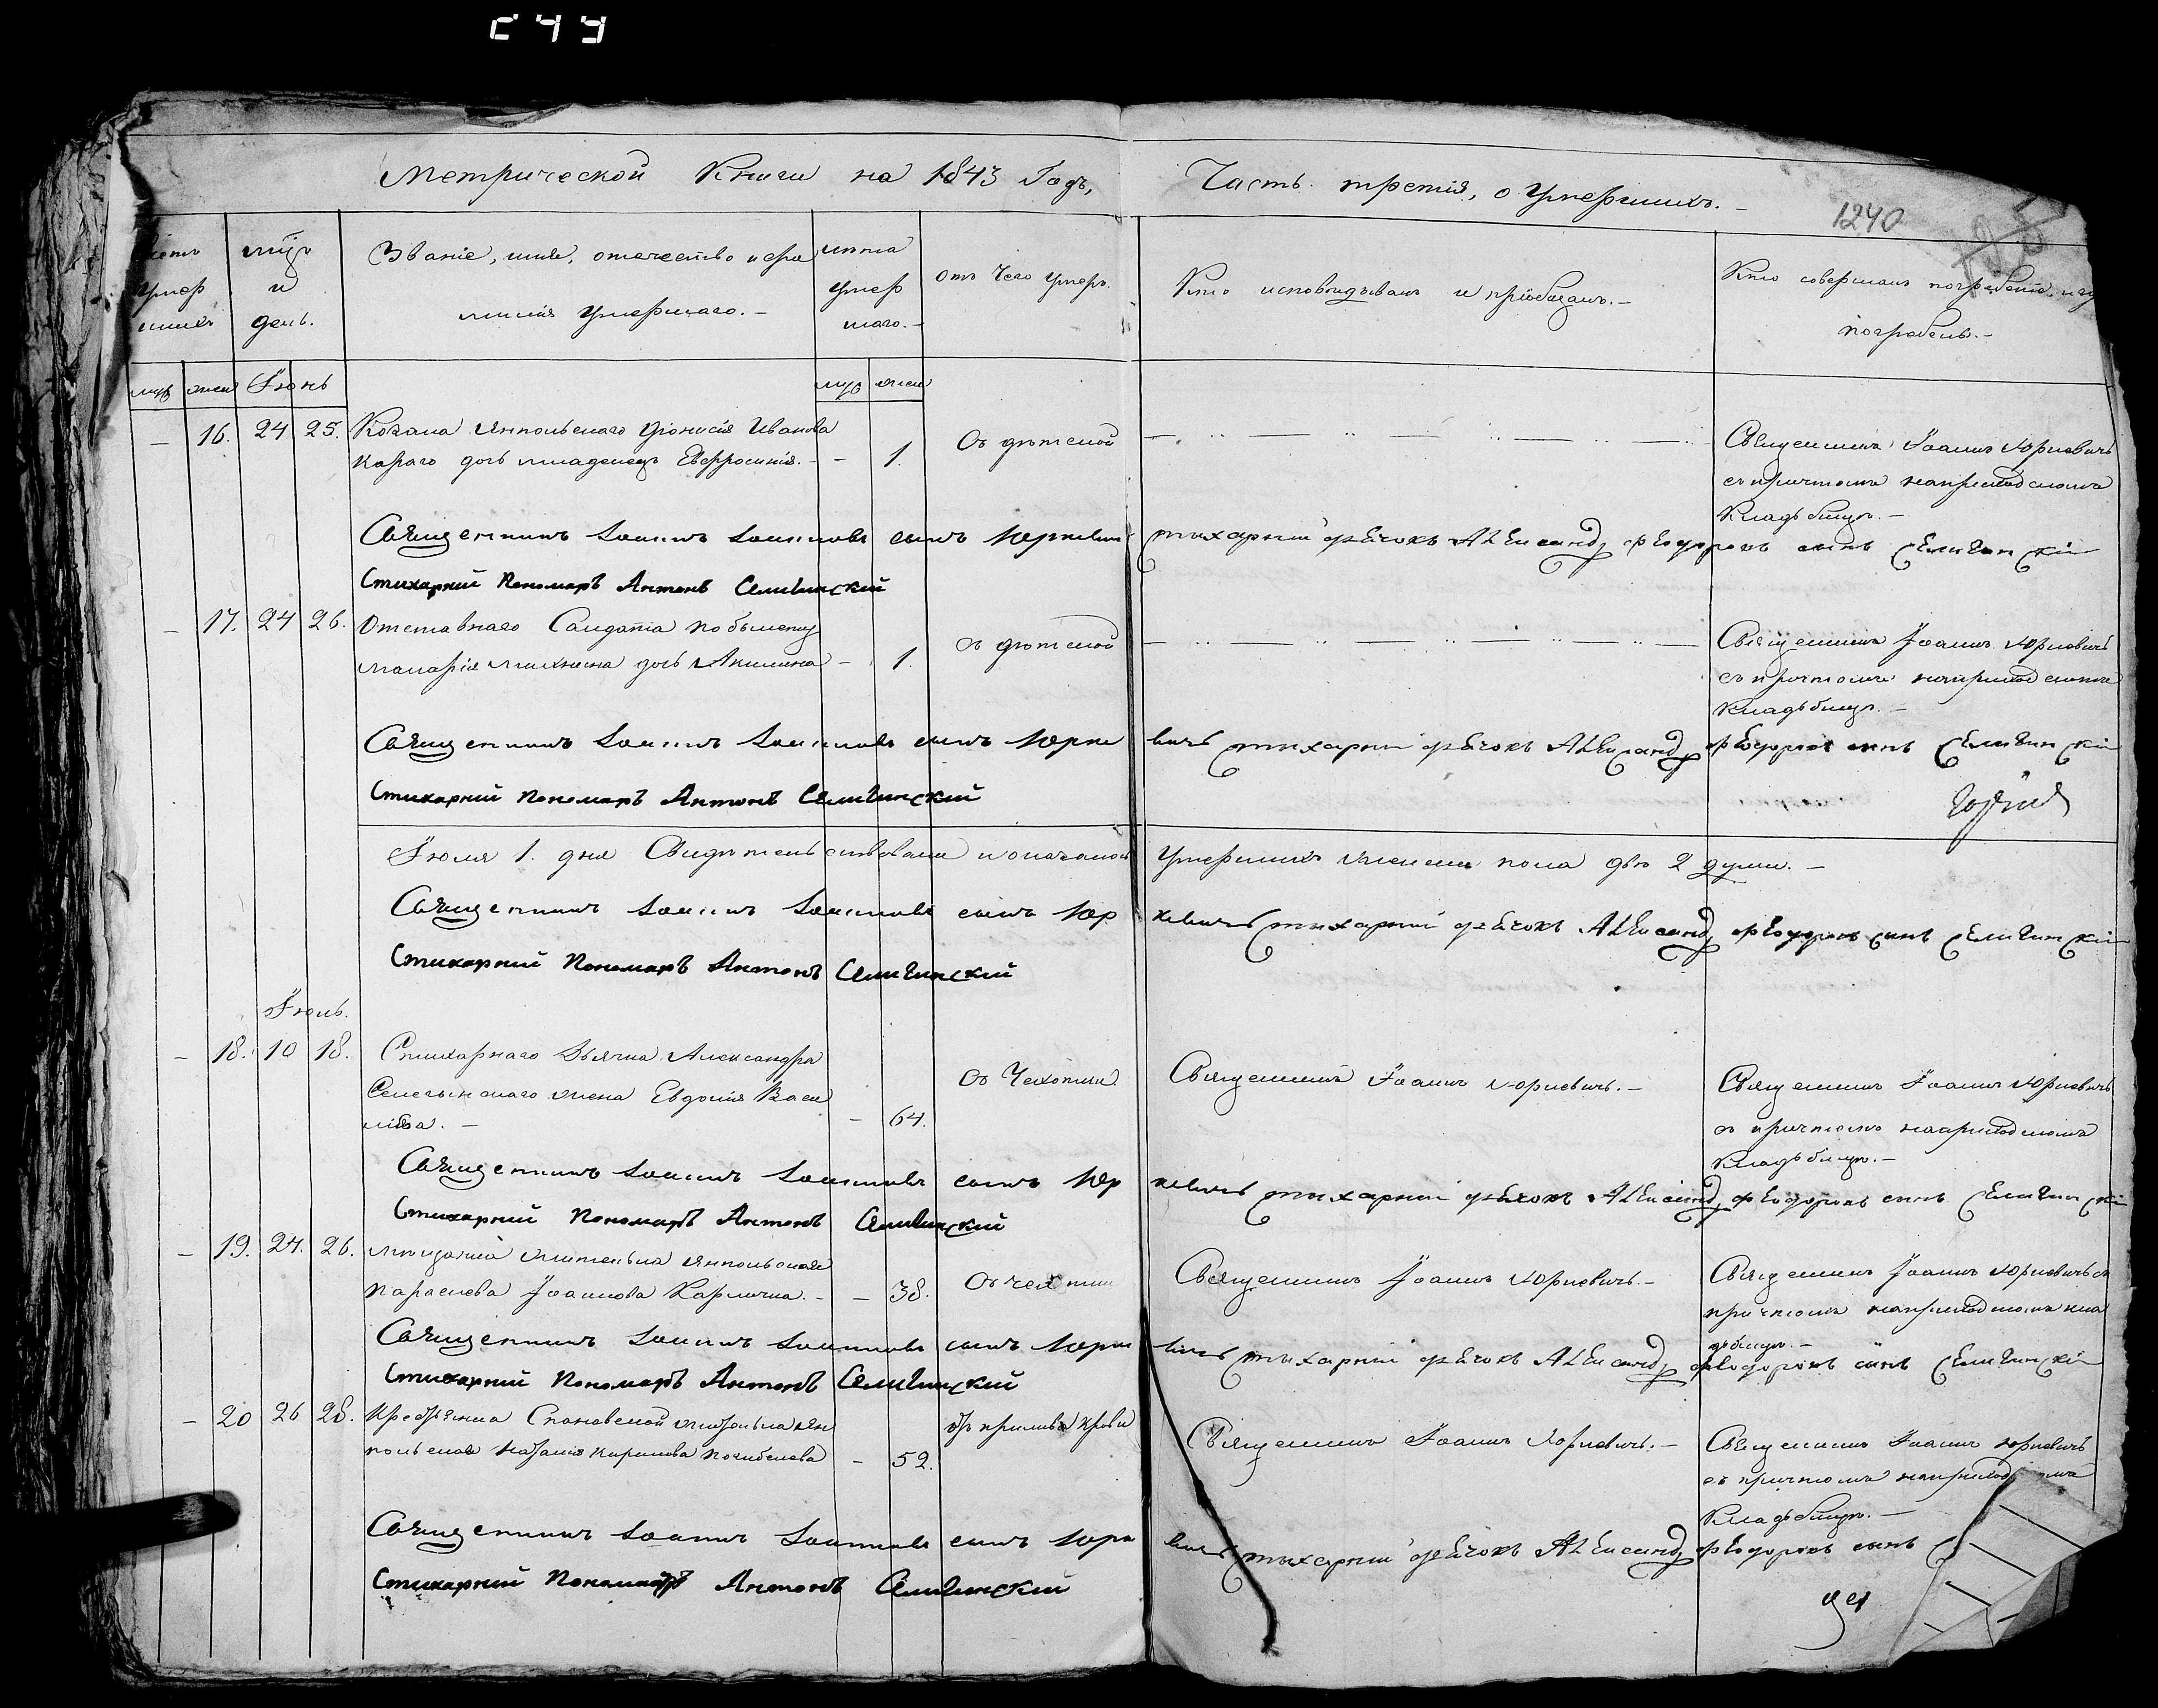 Метрической Книги на 1843 Годъ,
Часть третія, о Умершихъ.–
1240
умер
шихъ
и
день.
Званіе, имя, отечество и фа
милія Умершаго.–
лѣта
умер
шаго.–
отъ Чего Умеръ.
Кто исповѣдывалъ и пріобщалъ.–
Кто совершалъ погребеніе и гдѣ
погребенъ.–
муж жен Іюнь
муж жен
– 16. 24 25. Козака Ямпольскаго Діонисія Иванова
дочь младенецъ Евфросинія.– – 1.
Отъ дѣтской
Священникъ Іоаннъ Юркевичъ
съ причтомъ на приходскомъ
Кладбищѣ.–
Священникъ Іоаннъ Іоанновъ сынъ Юркевичъ стихарный дячокъ Александръ Феодоровъ сынъ Селигинскій
Стихарній Пономаръ Антонъ Селигинский
– 17. 24 26. Отставнаго Солдата по билету
Макарія дочь Акилина – 1.
отъ дѣтской
Священникъ Іоаннъ Юркевичъ
съ причтомъ на приходскомъ
Кладбищѣ.–
Священникъ Іоаннъ Іоанновъ сынъ Юрке вичъ стихарный дячокъ Александръ Феодоровъ сынъ Селигинскій
Стихарній Пономаръ Антонъ Селигинский
Іюля 1. дня Свидѣтельствовали и оказалось Умершихъ женска пола двѣ 2 души.–
Священникъ Іоаннъ Іоанновъ сынъ Юр кевичъ стихарный дячокъ Александръ Феодоровъ сынъ Селигинскій
Стихарній Пономаръ Антонъ Селигинский
Іюль.
– 18. 10 18. Стихарнаго Дьячка Александра
Селегинскаго жена Евдокія Васи
ліева.– – 64.
Отъ Чехотки
Священникъ Іоаннъ Юркевичъ.–
Священникъ Іоаннъ Юркевичъ
съ причтомъ на приходскомъ
Кладбищѣ.–
Священникъ Іоаннъ Іоанновъ сынъ Юр кевичъ стихарный дячокъ Александръ Феодоровъ сынъ Селигинскій
Стихарній Пономаръ Антонъ Селигинский
– 19. 24. 26. жителька Ямпольская
Параскева Іоаннова – 38.
Отъ чехотки
Священникъ Іоаннъ Юркевичъ.–
Священникъ Іоаннъ Юркевичъ съ
причтомъ на приходскомъ кла
дбищѣ.–
Священникъ Іоаннъ Іоанновъ сынъ Юрке вичъ стихарный дячокъ Александръ Феодоровъ сынъ Селигинскій
Стихарній Пономаръ Антонъ Селигинский
– 20 26 28. жителька Ям
польская Наталія Кирилова – 52.
отъ прилива крови
Священникъ Іоаннъ Юркевичъ.–
Священникъ Іоаннъ Юркевичъ
съ причтомъ на
Кладбищѣ.–
Священникъ Іоаннъ Іоанновъ сынъ Юрке вичъ стихарный дячокъ Александръ Феодоровъ сынъ
Стихарній Пономаръ Антонъ Селигинский